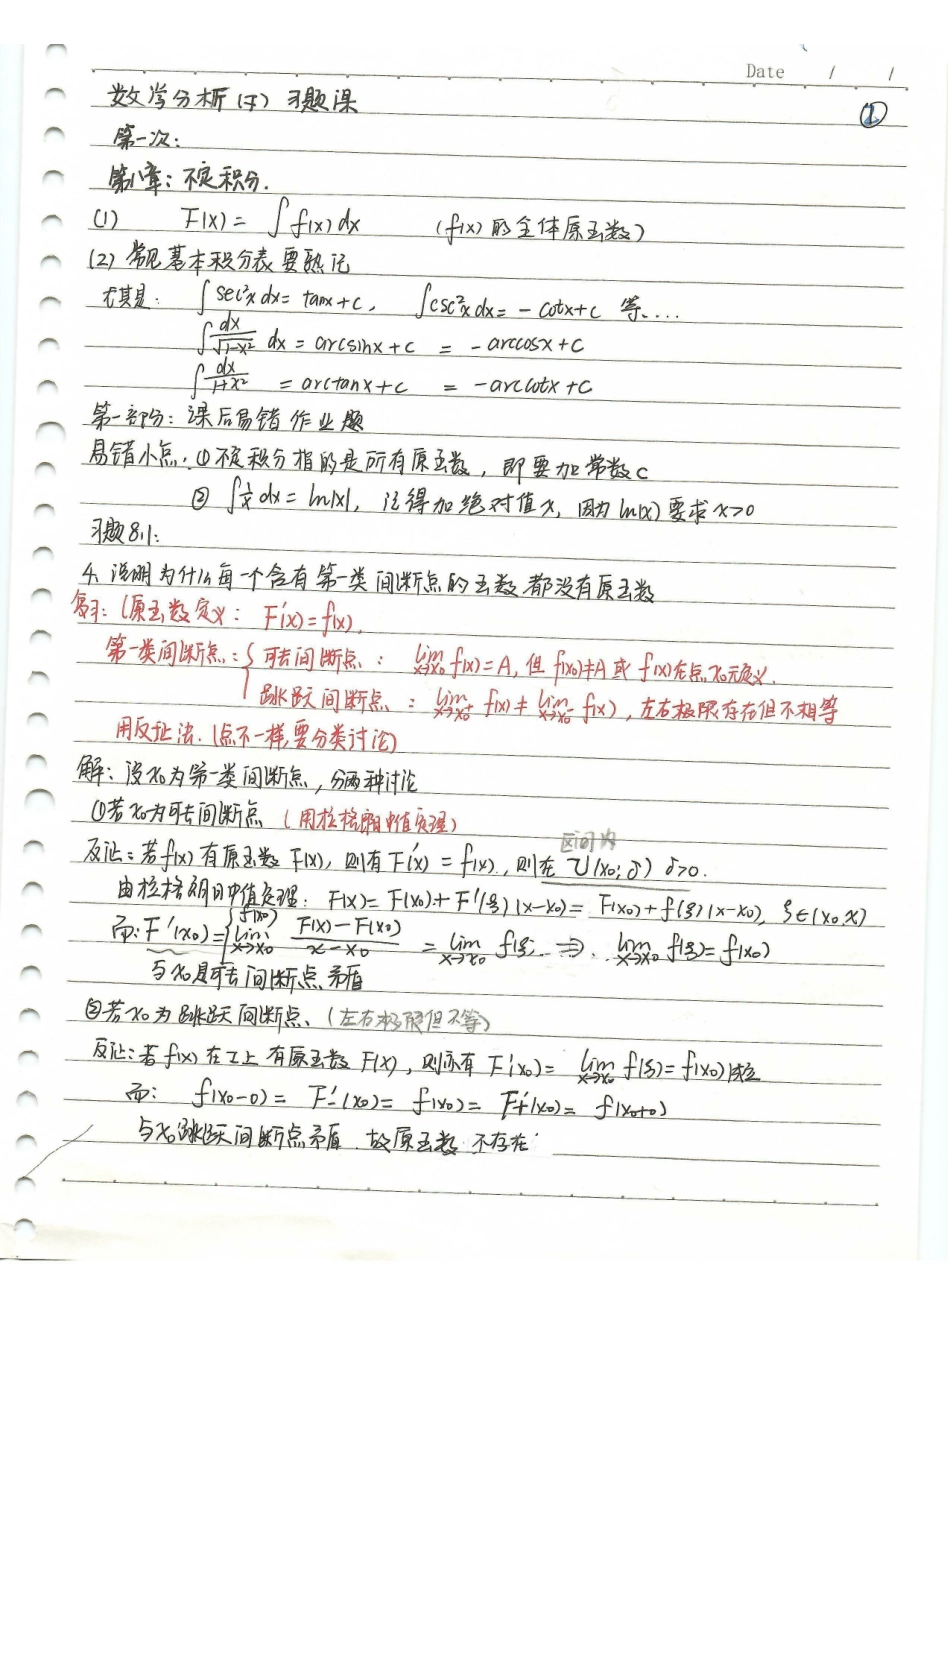 Date / /
①
数学分析(下) 习题课
第一次:
第八章: 不定积分.
(1) F(x) = ∫ f(x) dx (f(x) 的全体原函数)
(2) 常见基本积分表要熟记
尤其是: ∫ sec²x dx = tanx + c, ∫ csc²x dx = - cotx + c 等....
∫ dx/√(1-x²) dx = arcsinx + c = - arccosx + c
∫ dx/(1+x²) = arctanx + c = - arccotx + c
第一部分: 课后易错作业题
易错小点: ① 不定积分指的是所有原函数, 即要加常数c
② ∫ 1/x dx = ln|x|, 记得加绝对值x, 因为 ln(x) 要求 x>0
习题8.1:
4. 说明为什么每一个含有第一类间断点的函数都没有原函数
复习: (原函数定义: F'(x) = f(x).
第一类间断点: { 可去间断点: lim x→x₀ f(x) = A, 但 f(x₀)≠A 或 f(x)在点x₀无定义.
跳跃间断点: lim x→x₀⁺ f(x) ≠ lim x→x₀⁻ f(x), 左右极限存在但不相等
用反证法. (点不一样, 要分类讨论)
解: 设x₀为第一类间断点, 分两种讨论
①若x₀为可去间断点 (用拉格朗中值定理)
区间内
反证: 若f(x)有原函数F(x), 则有F'(x) = f(x)., 则在 U(x₀; δ) δ>0.
由拉格朗日中值定理: F(x) = F(x₀) + F'(ξ)(x-x₀) = F(x₀) + f(ξ)(x-x₀), ξ∈(x₀,x)
而: F'(x₀) = { f(x₀) lim x→x₀ (F(x)-F(x₀))/(x-x₀) = lim x→x₀ f(ξ. ⇒. lim x→x₀ f(ξ) = f(x₀)
与x₀是可去间断点矛盾
②若x₀为跳跃间断点、(左右极限但不等)
反证: 若f(x)在I上有原函数F(x), 则亦有F'(x₀) = lim x→x₀ f(ξ) = f(x₀)成立
而: f(x₀-0) = F'₋(x₀) = f(x₀) = F'₊(x₀) = f(x₀+0)
与x₀跳跃间断点矛盾. 故原函数不存在